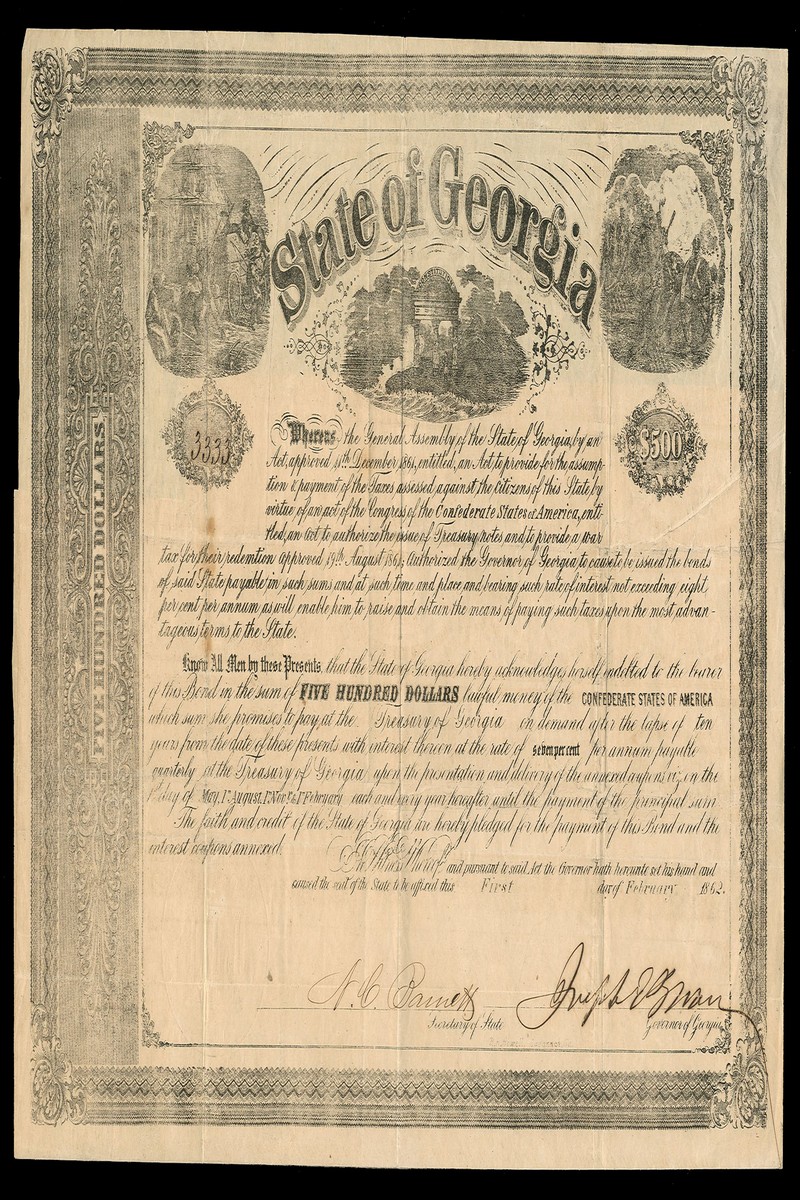 State of Georgia
3333
$500
FIVE HUNDRED DOLLARS
Whereas the General Assembly of the State of Georgia, by an
Act, approved 11th December 1861, entitled, an Act, to provide for the assump-
tion & payment of the Taxes assessed against the Citizens of this State, by
virtue of an act of the Congress of the Confederate States of America, enti-
tled, an Act to authorize the issue of Treasury notes and, to provide a war
tax for their redemtion approved 19th August 1861; Authorized the Governor of Georgia, to cause to be issued the bonds
of said State payable in such sums and at such time and place and bearing such rate of interest not exceeding eight
per cent per annum as will enable him to raise and obtain the means of paying such taxes upon the most advan-
tageous terms to the State.
Know All Men by these Presents, that the State of Georgia hereby acknowledges herself indebted to the bearer
of this Bond in the sum of FIVE HUNDRED DOLLARS lawful money of the CONFEDERATE STATES OF AMERICA
which sum she promises to pay at the Treasury of Georgia on demand after the lapse of ten
years from the date of these presents with interest thereon at the rate of seven per cent per annum payable
quarterly at the Treasury of Georgia upon the presentation and delivery of the annexed coupons viz, on the
1st day of May, 1st August, 1st Nov. & 1st February each and every year hereafter until the payment of the principal sum
The faith and credit of the State of Georgia are hereby pledged for the payment of this Bond and the
interest coupons annexed.
In Witness whereof and pursuant to said Act the Governor hath hereunto set his hand and
caused the seal of the State to be affixed this First day of February 1862.
N. C. Barnett
Secretary of State
Joseph E Brown
Governor of Georgia